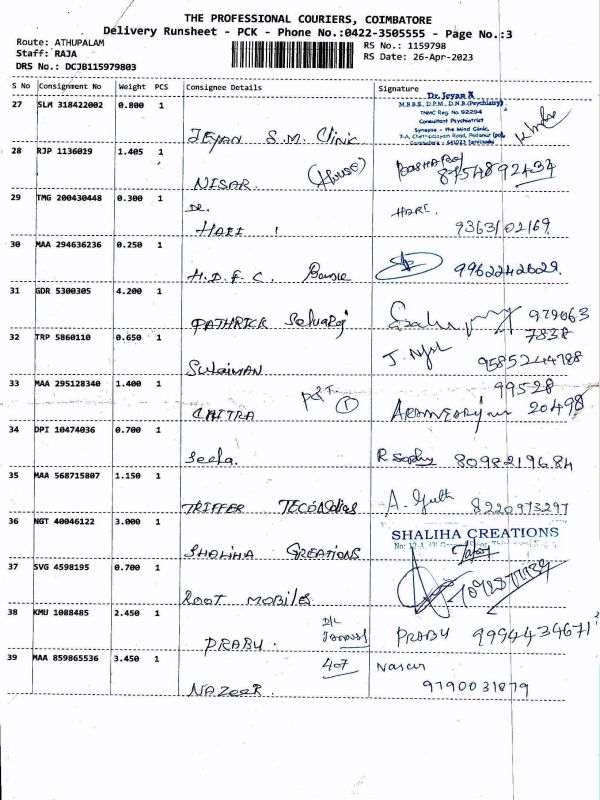 THE PROFESSIONAL COURIERS, COIMBATORE
Delivery Runsheet - PCK - Phone No.:0422-3505555 - Page No.:3
Route: ATHUPALAM
Staff: RAJA
DRS No.: DCJB115979803
RS No.: 1159798
RS Date: 26-Apr-2023
S No Consignment No Weight PCS Consignee Details Signature
27 SLM 318422002 0.800 1
Dr. Jeyan A
M.B.B.S., D.P.M., D.N.B.(Psychiatry)
TNMC Reg. No. 92294
Consultant Psychiatrist
Synapse - the Mind Clinic,
7-A, Chettipalayam Road, Podanur (po),
Coimbatore - 641023 Tamilnadu
JEYAN S.M. Clinic
28 RJP 1136019 1.405 1
NISAR. (House) 8754892434
29 TMG 200430448 0.300 1
DR.
HARI ! HARI. 9363102169
30 MAA 294636236 0.250 1
H.D.F.C. 9962242629
31 GDR 5300305 4.200 1
PATHRICK Selvaraj 979063
7838
32 TRP 5860110 0.650 1
SULAIMAN 9585244788
33 MAA 295128340 1.400 1
99528
CHITRA 1 20498
34 DPI 10474036 0.700 1
Seela. 8098219684
35 MAA 568715807 1.150 1
TRIFFER 8220973297
36 NGT 40046122 3.000 1
SHALIHA CREATIONS
SHALIHA CREATIONS
37 SVG 4598195 0.700 1
ROOT MOBILES
38 KMU 1088485 2.450 1
D/L
PRABU. PRABU 9994434671
39 MAA 859865536 3.450 1
407
NAZEER. 9790031879